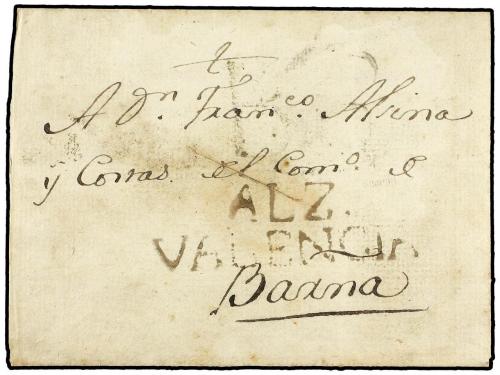 A Dn. Franco. Alsina
y Corras el Como. e
ALZ.
VALENCIA
Barna